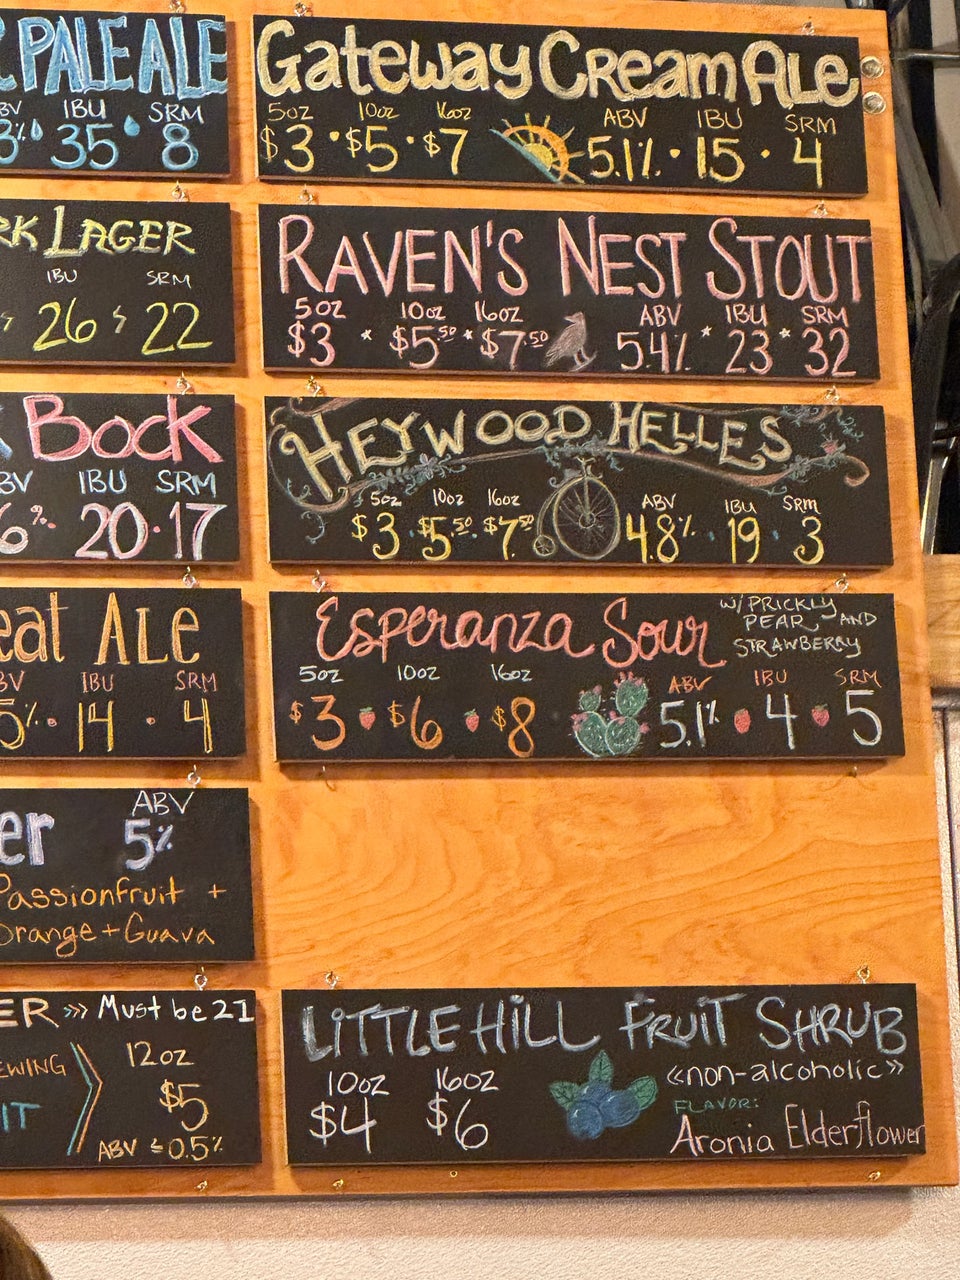 PALE ALE
IBU SRM
35 8
LAGER
IBU SRM
26 22
BOCK
IBU SRM
20 · 17
ALE
IBU SRM
14 · 4
ABV
5%
Passionfruit +
Orange + Guava
>>> Must be 21
12oz
$5
ABV ≤ 0.5%
Gateway Cream Ale
5oz 10oz 16oz ABV IBU SRM
$3 · $5 · $7 5.1% · 15 · 4
RAVEN'S NEST STOUT
5oz 10oz 16oz ABV IBU SRM
$3 * $5.50 * $7.50 5.4% * 23 * 32
HEYWOOD HELLES
5oz 10oz 16oz ABV IBU SRM
$3 · $5.50 · $7.50 4.8% · 19 · 3
Esperanza Sour W/ PRICKLY
PEAR AND
STRAWBERRY
5oz 10oz 16oz ABV IBU SRM
$3 $6 $8 5.1% 4 5
LiTTLE HiLL FRUiT SHRUB
10oz 16oz «non-alcoholic»
$4 $6 FLAVOR:
Aronia Elderflower